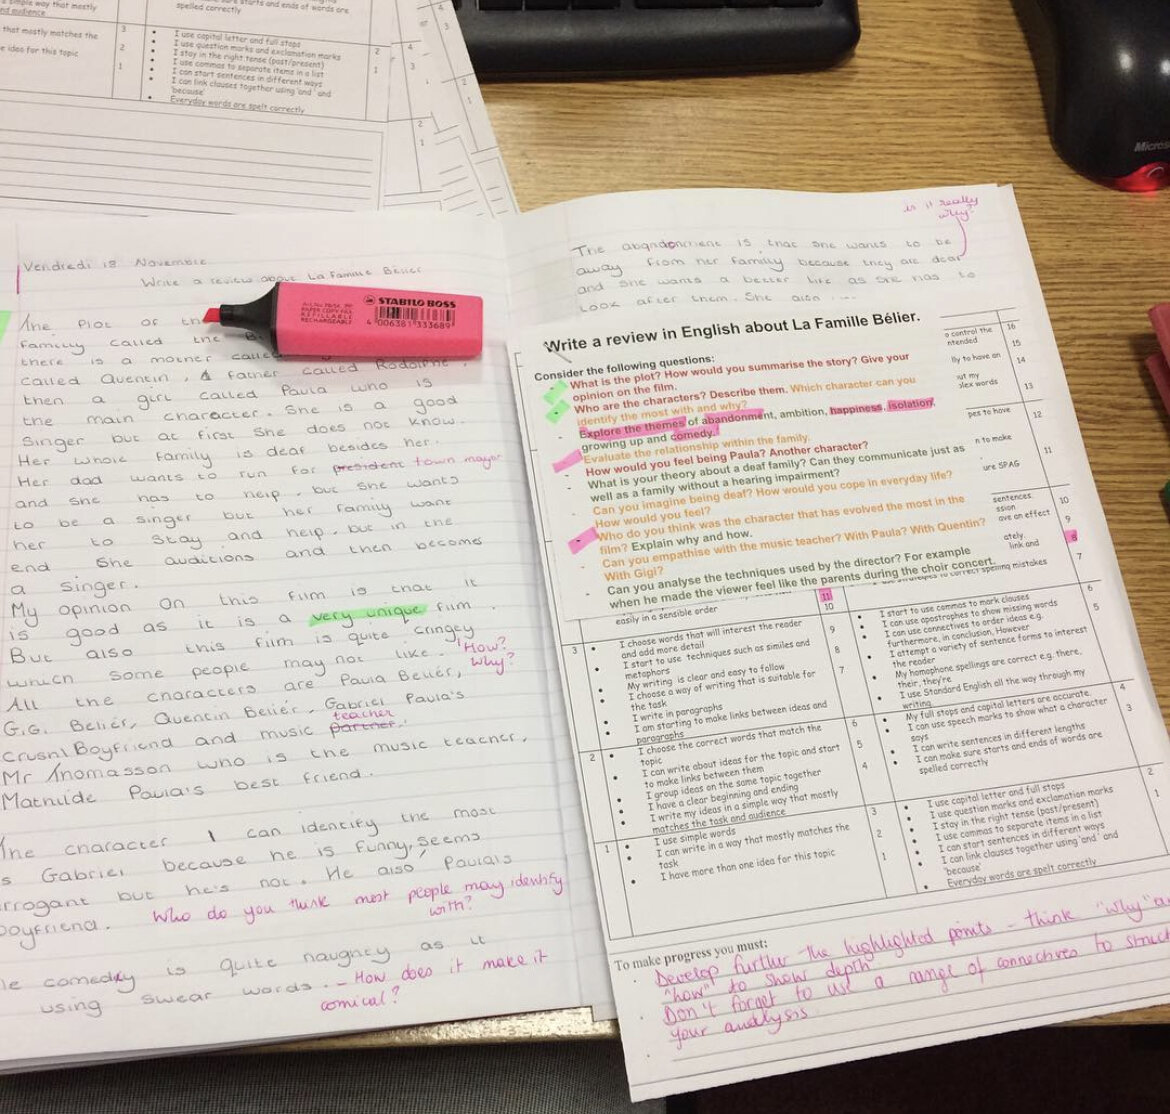 simple way that mostly
and audience
spelled correctly
that mostly matches the
e idea for this topic
3
2
1
I use capital letter and full stops
I use question marks and exclamation marks
I stay in the right tense (past/present)
I use commas to separate items in a list
I can start sentences in different ways
I can link clauses together using 'and' and
'because'
Everyday words are spelt correctly
2
1
4
3
2
1
2
1
Microso
Vendredi 18 Novembre
Write a review about La Famille Bélier
The Plot of th
family called the B
there is a mother calle
called Quentin, A father called Rodolphe,
then a girl called Paula who is
the main character. She is a good
Singer but at first she does not know.
Her whole family is deaf besides her.
Her dad wants to run for president town mayor
and she has to help, but she wants
to be a singer but her family want
her to stay and help, but in the
end she auditions and then becomes
a singer.
My opinion on this film is that it
is good as it is a very unique film.
But also this film is quite cringey
which some people may not like. - "How?
Why?
All the characters are Paula Belier,
G.G. Beliér, Quentin Beliér, Gabriel Paula's
teacher
crush/Boyfriend and music partner.
Mr Thomasson who is the music teacher,
Mathilde Paula's best friend.
The character I can identify the most
s Gabriel because he is funny, seems
rrogant but he's not. He also Paula's
boyfriend. Who do you think most people may identify
with?
e comedy is quite naughty as it
using swear words. - How does it make it
comical?
STABILO BOSS
PAPER COPY FAX
REFILLABLE
RECHARGEABLE
4 006381 333689
is it really
why?
The abandonment is that she wants to be
away from her family because they are deaf
and she wants a better life as she has to
look after them. She also ....
Write a review in English about La Famille Bélier.
Consider the following questions:
- What is the plot? How would you summarise the story? Give your
opinion on the film.
- Who are the characters? Describe them. Which character can you
identify the most with and why?
- Explore the themes of abandonment, ambition, happiness, isolation,
growing up and comedy.
- Evaluate the relationship within the family.
- How would you feel being Paula? Another character?
- What is your theory about a deaf family? Can they communicate just as
well as a family without a hearing impairment?
- Can you imagine being deaf? How would you cope in everyday life?
How would you feel?
- Who do you think was the character that has evolved the most in the
film? Explain why and how.
- Can you empathise with the music teacher? With Paula? With Quentin?
With Gigi?
- Can you analyse the techniques used by the director? For example
when he made the viewer feel like the parents during the choir concert.
o control the
ntended
lly to have an
ut my
plex words
pes to have
n to make
ure SPAG
sentences,
ssion
ave an effect
ately
link and
16
15
14
13
12
11
10
9
8
7
easily in a sensible order
11
10
3
I choose words that will interest the reader
and add more detail
I start to use techniques such as similes and
metaphors
My writing is clear and easy to follow
I choose a way of writing that is suitable for
the task
I write in paragraphs
I am starting to make links between ideas and
paragraphs
9
8
7
I use strategies to correct spelling mistakes
I start to use commas to mark clauses
I can use apostrophes to show missing words
I can use connectives to order ideas e.g.
furthermore, in conclusion, However
I attempt a variety of sentence forms to interest
the reader
My homophone spellings are correct e.g. there,
their, they're
I use Standard English all the way through my
writing
6
5
2
I choose the correct words that match the
topic
I can write about ideas for the topic and start
to make links between them
I group ideas on the same topic together
I have a clear beginning and ending
I write my ideas in a simple way that mostly
matches the task and audience
6
5
4
My full stops and capital letters are accurate.
I can use speech marks to show what a character
says
I can write sentences in different lengths
I can make sure starts and ends of words are
spelled correctly
4
3
1
I use simple words
I can write in a way that mostly matches the
task
I have more than one idea for this topic
3
2
1
I use capital letter and full stops
I use question marks and exclamation marks
I stay in the right tense (past/present)
I use commas to separate items in a list
I can start sentences in different ways
I can link clauses together using 'and' and
'because'
Everyday words are spelt correctly
2
1
To make progress you must:
Develop further the highlighted points - think "why" a
"how" to show depth
Don't forget to use a range of connectives to struct
your analysis